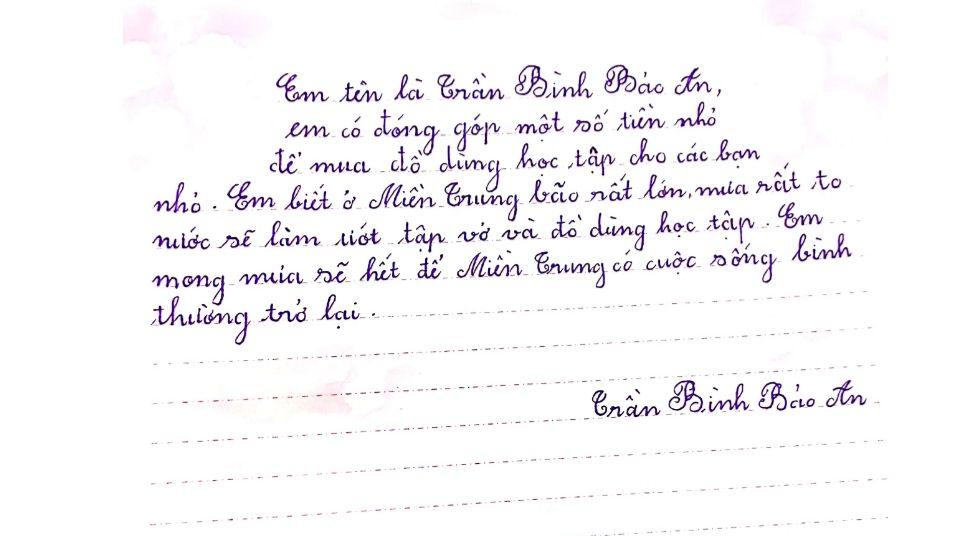 Em tên là Trần Bình Bảo An,
em có đóng góp một số tiền nhỏ
để mua đồ dùng học tập cho các bạn
nhỏ. Em biết ở Miền Trung bão rất lớn, mưa rất to
nước sẽ làm ướt tập vở và đồ dùng học tập. Em
mong mưa sẽ hết để Miền Trung có cuộc sống bình
thường trở lại.
Trần Bình Bảo An